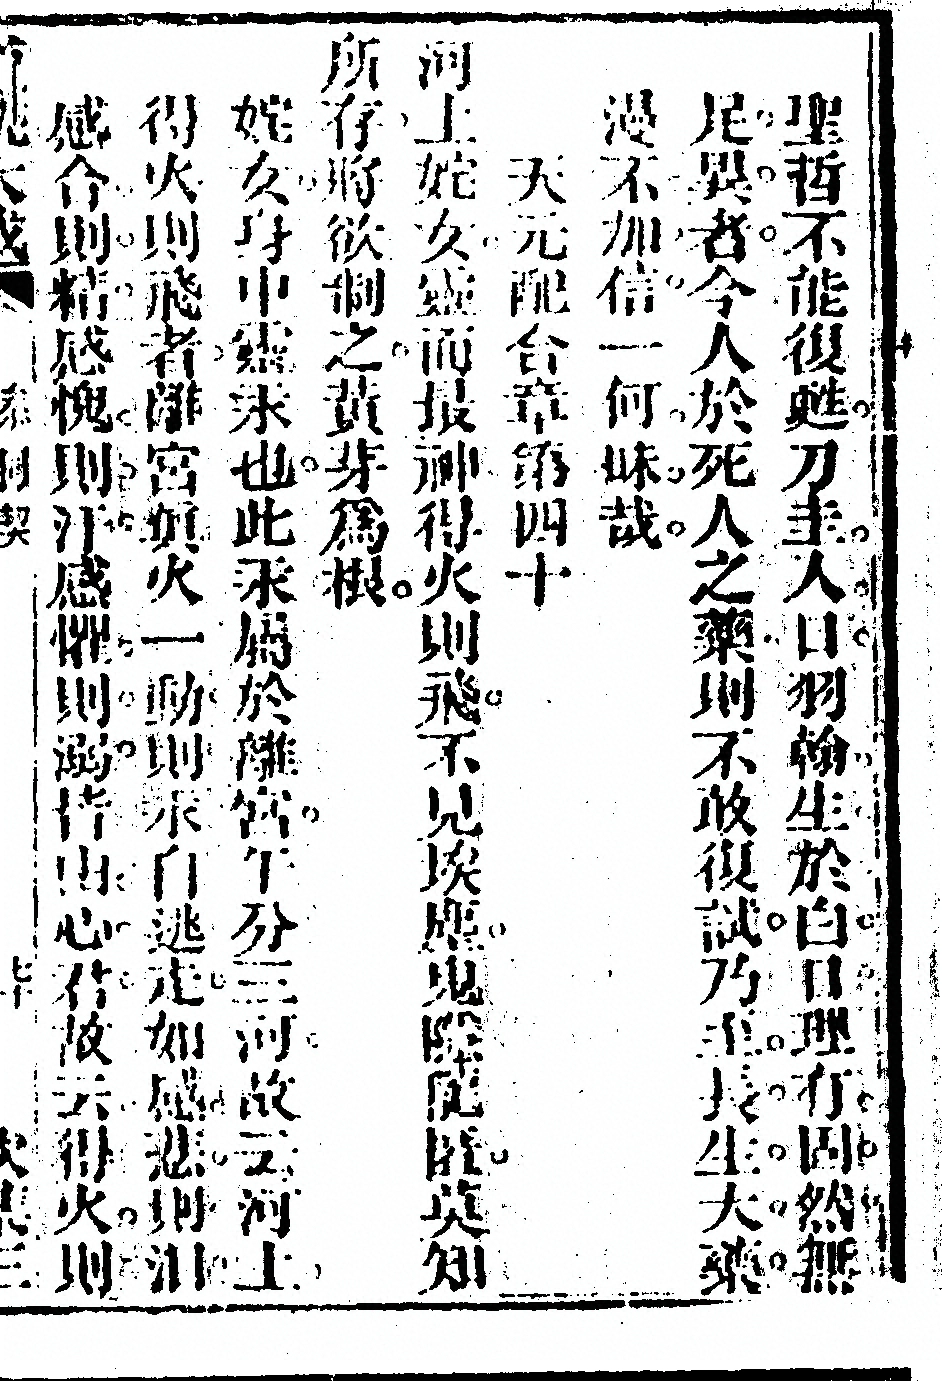 聖哲不能復甦刀圭入口羽翰生於白日理有固然無
足異者今人於死人之藥則不敢復試乃至長生大藥
漫不加信一何昧哉
天元配合章第四十
河上姹女靈而最神得火則飛不見埃塵鬼隱龍匿莫知
所存將欲制之黃芽爲根
姹女身中靈汞也此汞屬於離宮午分三河故云河上
得火則飛者離宮頻火一動則汞自逃走如感悲則淚
感合則精感愧則汗感懼則溺皆由心君故云得火則